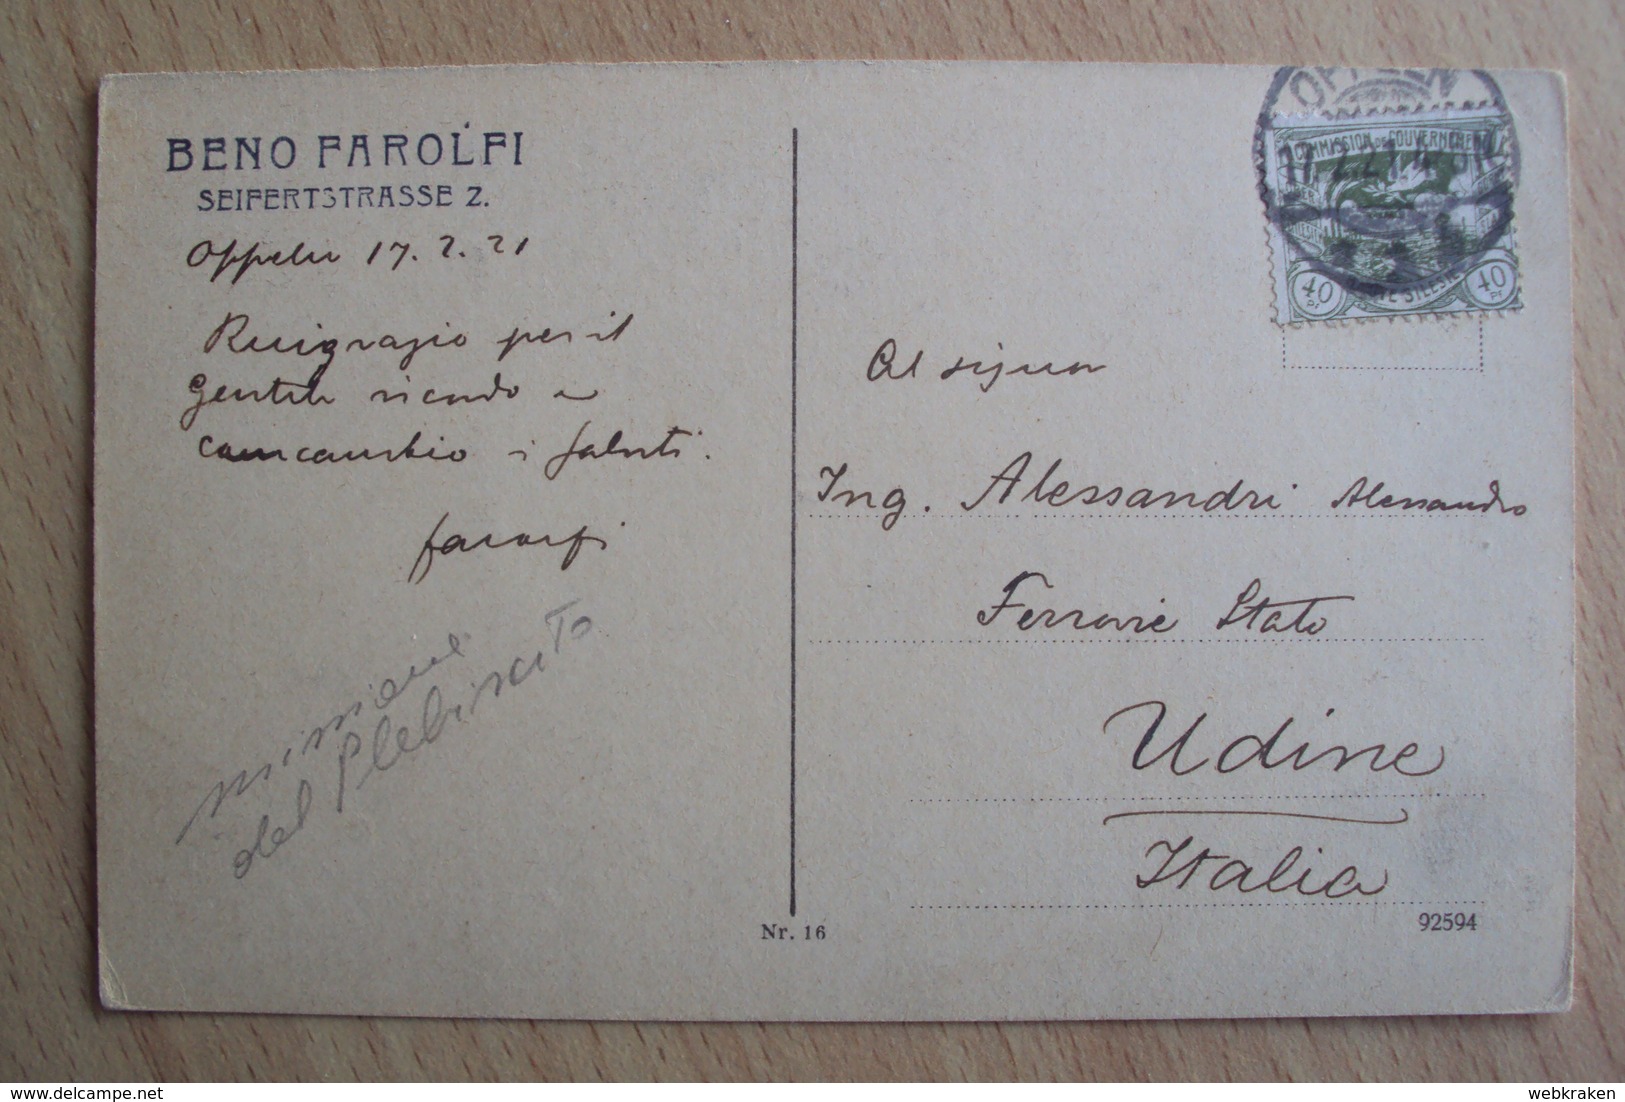 BENO FAROLFI
SEIFERTSTRASSE 2.
Oppeln 17. 2. 21
Ringrazio per il
gentile ricordo e
contraccambio i saluti.
Farolfi
missione
del Plebiscito
OPPELN
17.2.21.4-5N
COMMISSION DE GOUVERNEMENT
HAUTE SILESIE
40 Pf
40 Pf
Al signor
Ing. Alessandri Alessandro
Ferrovie Stato
Udine
Italia
Nr. 16
92594
webkraken